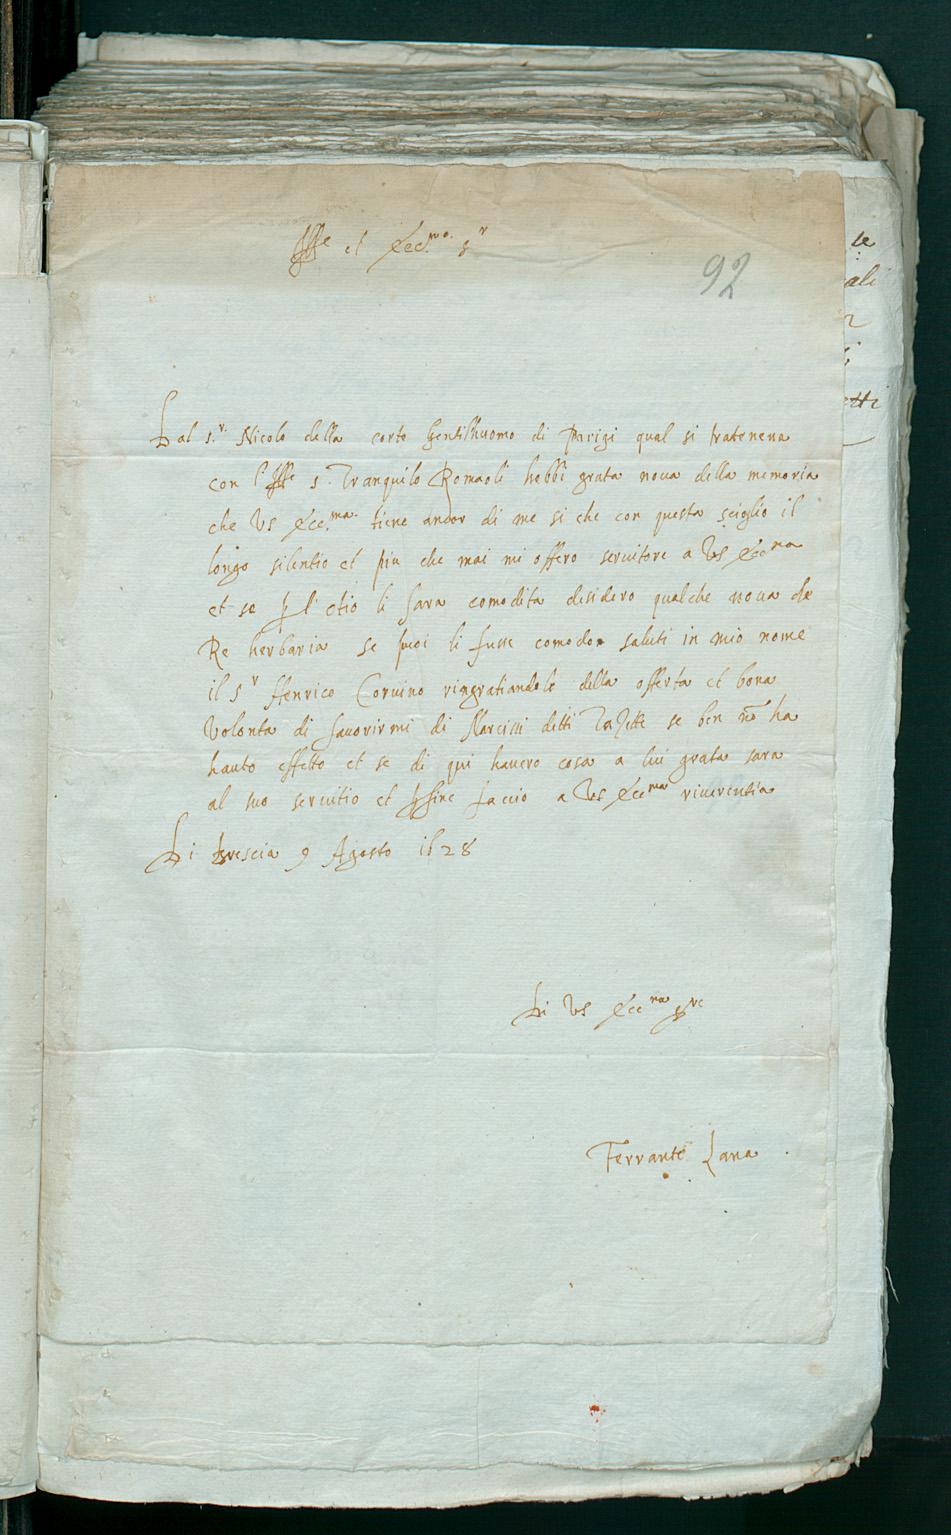 Ill.re et Ecc.mo. s.r
92
Dal s.r Nicolo della corte Gentilhuomo di Parigi qual si tratenena
con l' Ill.re s. Tranquilo Romaoli hebbi grata noua della memoria
che Vs Ecc.ma. tiene ancor di me si che con questa scioglio il
longo silentio et piu che mai mi offero seruitore a Vs Ecc.ma
et se p l' otio li sara comodita desidero qualche noua de
Re herbaria se puoi li fusse comodo saluti in mio nome
il s.r Henrico Coruino ringratiandolo della offerta et bona
Volonta di fauorirmi di Narcissi detti Tazette se ben nō ha
hauto effetto et se di qui hauero cosa a lui grata sara
al suo seruitio et p fine faccio a Vs Ecc.ma riuerentia
Di Brescia 9 Agosto 1628
Di Vs Ecc.ma s.re
Ferrante Lana